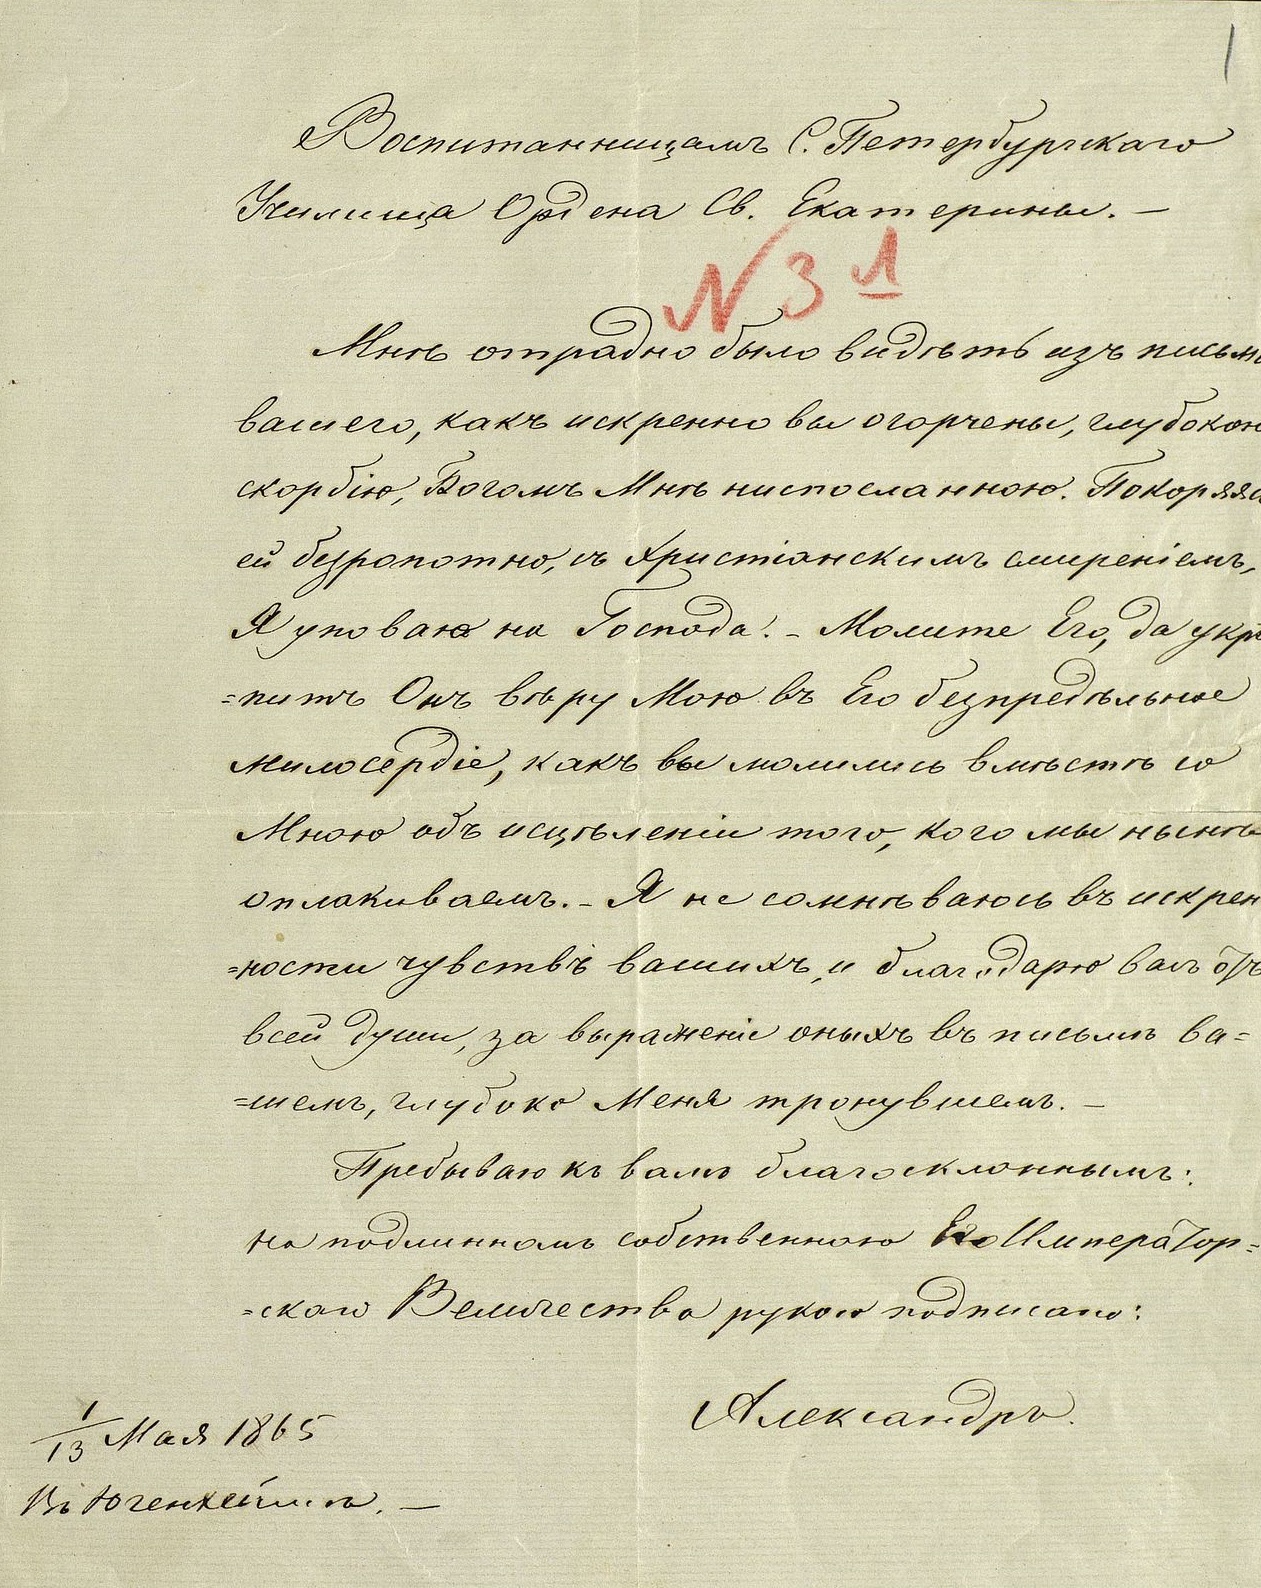 1
Воспитанницамъ С. Петербургскаго
Училища Ордена Св. Екатерины. —
N 3 л
Мнѣ отрадно было видѣть изъ письма
вашего, какъ искренно вы огорчены, глубокою
скорбію, Богомъ Мнѣ ниспосланною. Покоряясь
ей безропотно, съ Христіанскимъ смиреніемъ,
Я уповаю на Господа. - Молите Его, да укрѣ
=питъ Онъ вѣру Мою въ Его безпредѣльное
милосердіе, какъ вы молились вмѣстѣ со
Мною объ исцѣленіи того, кого мы нынѣ
оплакиваемъ. - Я не сомнѣваюсь въ искрен
=ности чувствъ вашихъ, и благодарю васъ отъ
всей души, за выраженіе оныхъ въ письмѣ ва=
=шемъ, глубоко Меня тронувшемъ. —
Пребываю къ вамъ благосклоннымъ:
на подлинномъ собственною Его Император=
=скаго Величества рукою подписано:
Александръ.
1/13 Мая 1865
Въ Югенхеймѣ. —